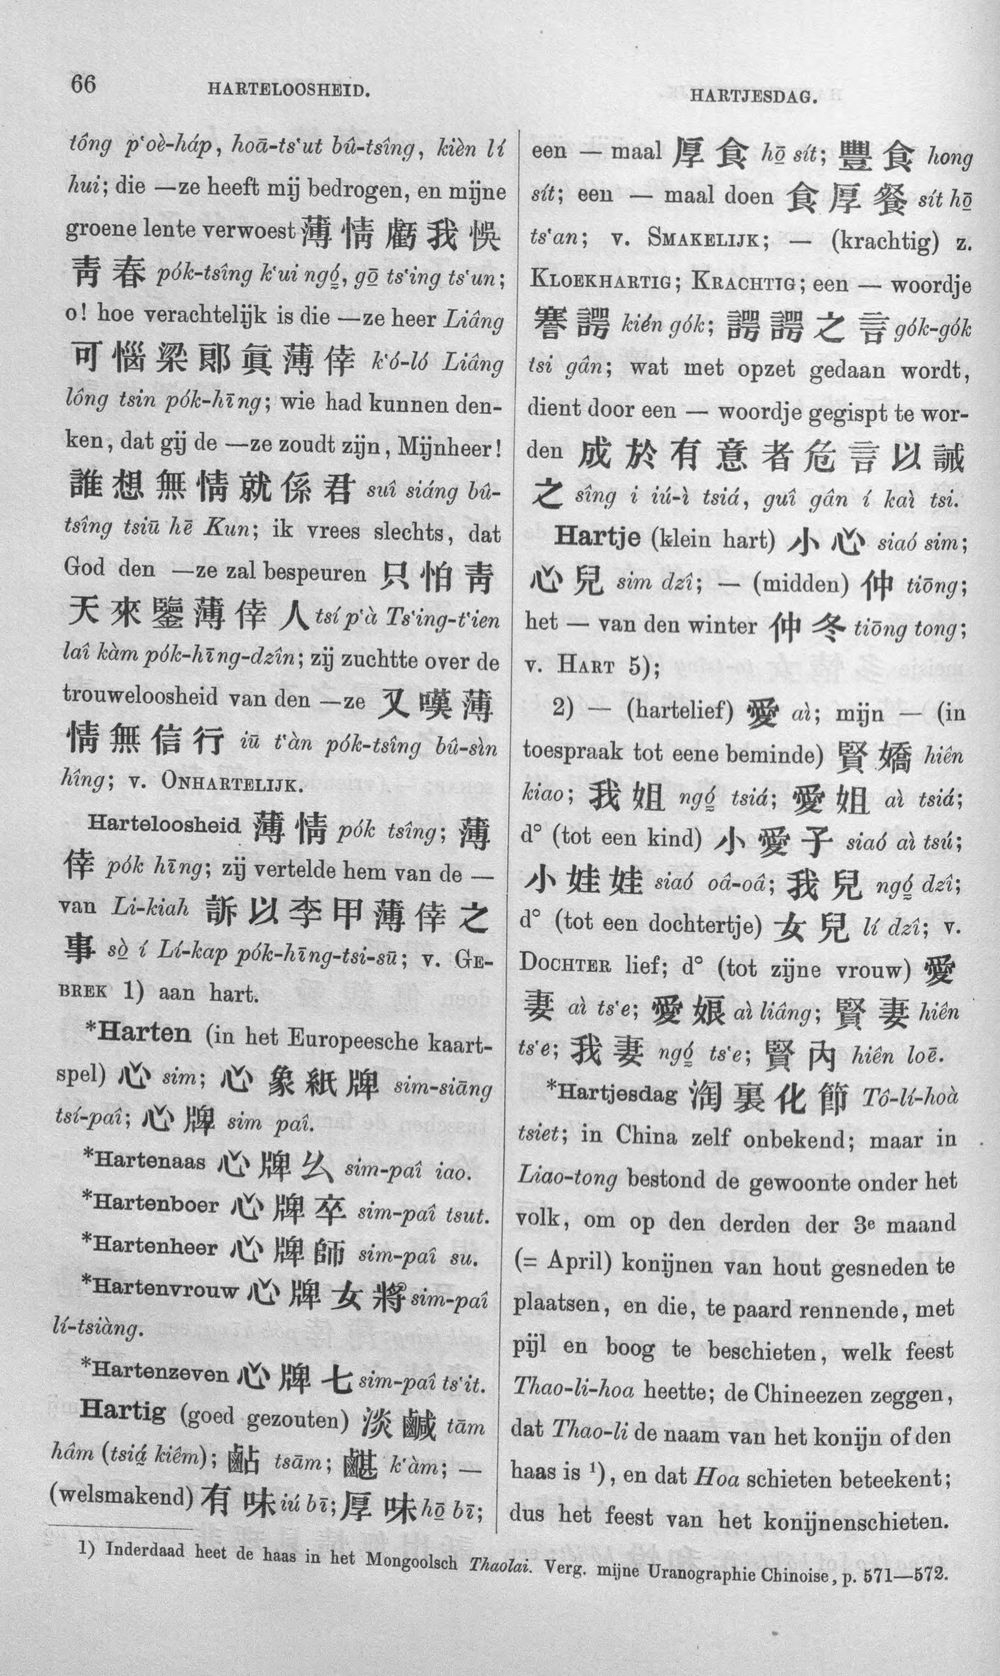 66 HARTELOOSHEID.
HARTJESDAG.
tông p‘oè-háp, hoā-ts‘ut bû-tsîng, kièn lí
hui; die —ze heeft mij bedrogen, en mijne
groene lente verwoest 薄情虧我悞
靑春 pók-tsîng k‘ui ngó, gō ts‘ing ts‘un;
o! hoe verachtelijk is die —ze heer Liâng
可惱梁郞眞薄倖 k‘ó-ló Liâng
lông tsin pók-hīng; wie had kunnen den-
ken, dat gij de —ze zoudt zijn, Mijnheer!
誰想無情就係君 suî siáng bû-
tsîng tsiū hē Kun; ik vrees slechts, dat
God den —ze zal bespeuren 只怕靑
天來鑒薄倖人 tsí p‘à Ts‘ing-t‘ien
laî kàm pók-hīng-dzîn; zij zuchtte over de
trouweloosheid van den —ze 又嘆薄
情無信行 iū t‘àn pók-tsîng bû-sìn
hîng; v. ONHARTELIJK.
Harteloosheid 薄情 pók tsîng; 薄
倖 pók hīng; zij vertelde hem van de —
van Li-kiah 訴以李甲薄倖之
事 sò í Lí-kap pók-hīng-tsi-sū; v. GE-
BREK 1) aan hart.
*Harten (in het Europeesche kaart-
spel) 心 sim; 心象紙牌 sim-siāng
tsí-paî; 心牌 sim paî.
*Hartenaas 心牌么 sim-paî iao.
*Hartenboer 心牌卒 sim-paî tsut.
*Hartenheer 心牌師 sim-paî su.
*Hartenvrouw 心牌女將 sim-paî
lí-tsiàng.
*Hartenzeven 心牌七 sim-paî ts‘it.
Hartig (goed gezouten) 淡鹹 tām
hâm (tsiá kiêm); 鮎 tsām; k‘àm; —
(welsmakend) 有味 iú bī; 厚味 hō bī;
een — maal 厚食 hō sít; 豐食 hong
sít; een — maal doen 食厚餐 sít hō
ts‘an; v. SMAKELIJK; — (krachtig) z.
KLOEKHARTIG; KRACHTIG; een — woordje
謇諤 kién gók; 諤諤之言 gók-gók
tsi gân; wat met opzet gedaan wordt,
dient door een — woordje gegispt te wor-
den 成於有意者危言以誡
之 sîng i iú-ì tsiá, guî gân í kaì tsi.
Hartje (klein hart) 小心 siaó sim;
心兒 sim dzî; — (midden) 仲 tiōng;
het — van den winter 仲冬 tiōng tong;
v. HART 5);
2) — (hartelief) 愛 aì; mijn — (in
toespraak tot eene beminde) 賢嬌 hiên
kiao; 我姐 ngó tsiá; 愛姐 aì tsiá;
d° (tot een kind) 小愛子 siaó aì tsú;
小娃娃 siaó oâ-oâ; 我兒 ngó dzî;
d° (tot een dochtertje) 女兒 lí dzî; v.
DOCHTER lief; d° (tot zijne vrouw) 愛
妻 aì ts‘e; 愛娘 aì liâng; 賢妻 hiên
ts‘e; 我妻 ngó ts‘e; 賢內 hiên loē.
*Hartjesdag 淘裏化節 Tô-lí-hoà
tsiet; in China zelf onbekend; maar in
Liao-tong bestond de gewoonte onder het
volk, om op den derden der 3e maand
(= April) konijnen van hout gesneden te
plaatsen, en die, te paard rennende, met
pijl en boog te beschieten, welk feest
Thao-li-hoa heette; de Chineezen zeggen,
dat Thao-li de naam van het konijn of den
haas is ¹), en dat Hoa schieten beteekent;
dus het feest van het konijnenschieten.
1) Inderdaad heet de haas in het Mongoolsch Thaolai. Verg. mijne Uranographie Chinoise, p. 571—572.